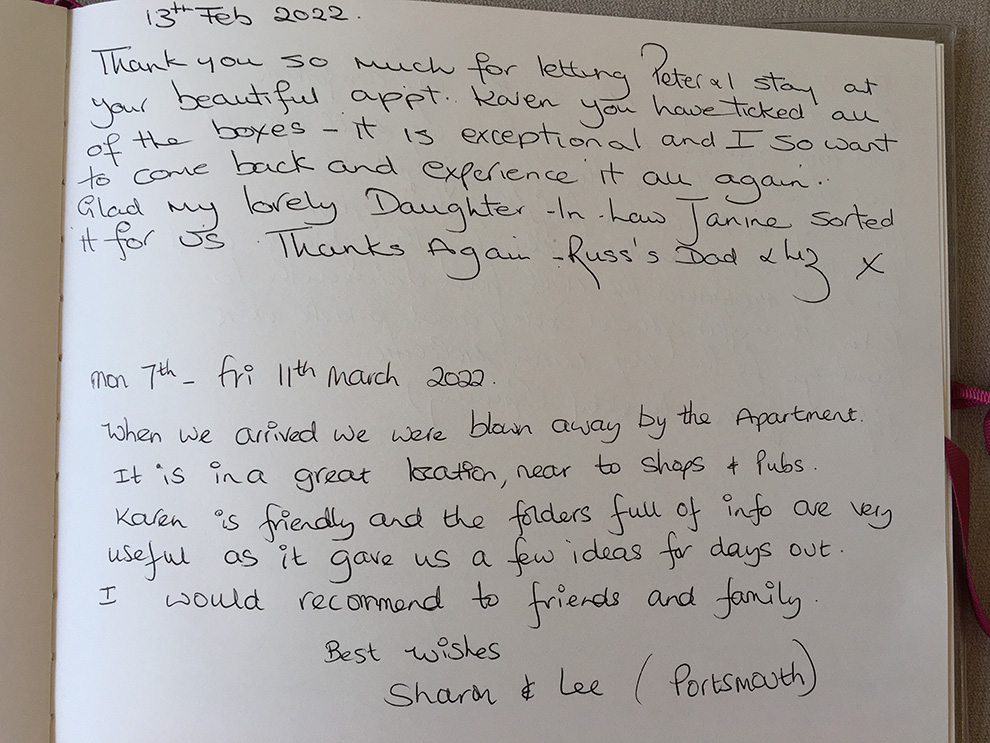 13th Feb 2022.
Thank you so much for letting Peter & I stay at
your beautiful appt. Karen you have ticked all
of the boxes - it is exceptional and I so want
to come back and experience it all again.
Glad my lovely Daughter-In-Law Janine sorted
it for us. Thanks Again - Russ's Dad & Liz X
Mon 7th - Fri 11th March 2022.
When we arrived we were blown away by the Apartment.
It is in a great location, near to shops & Pubs.
Karen is friendly and the folders full of info are very
useful as it gave us a few ideas for days out.
I would recommend to friends and family.
Best wishes
Sharon & Lee (Portsmouth)